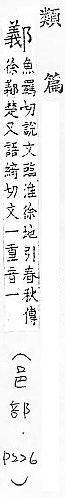 類篇
鄯魚羈切說文臨淮徐地引春秋傳
徐鄯楚又語綺切文一重音一
(邑部．P226)